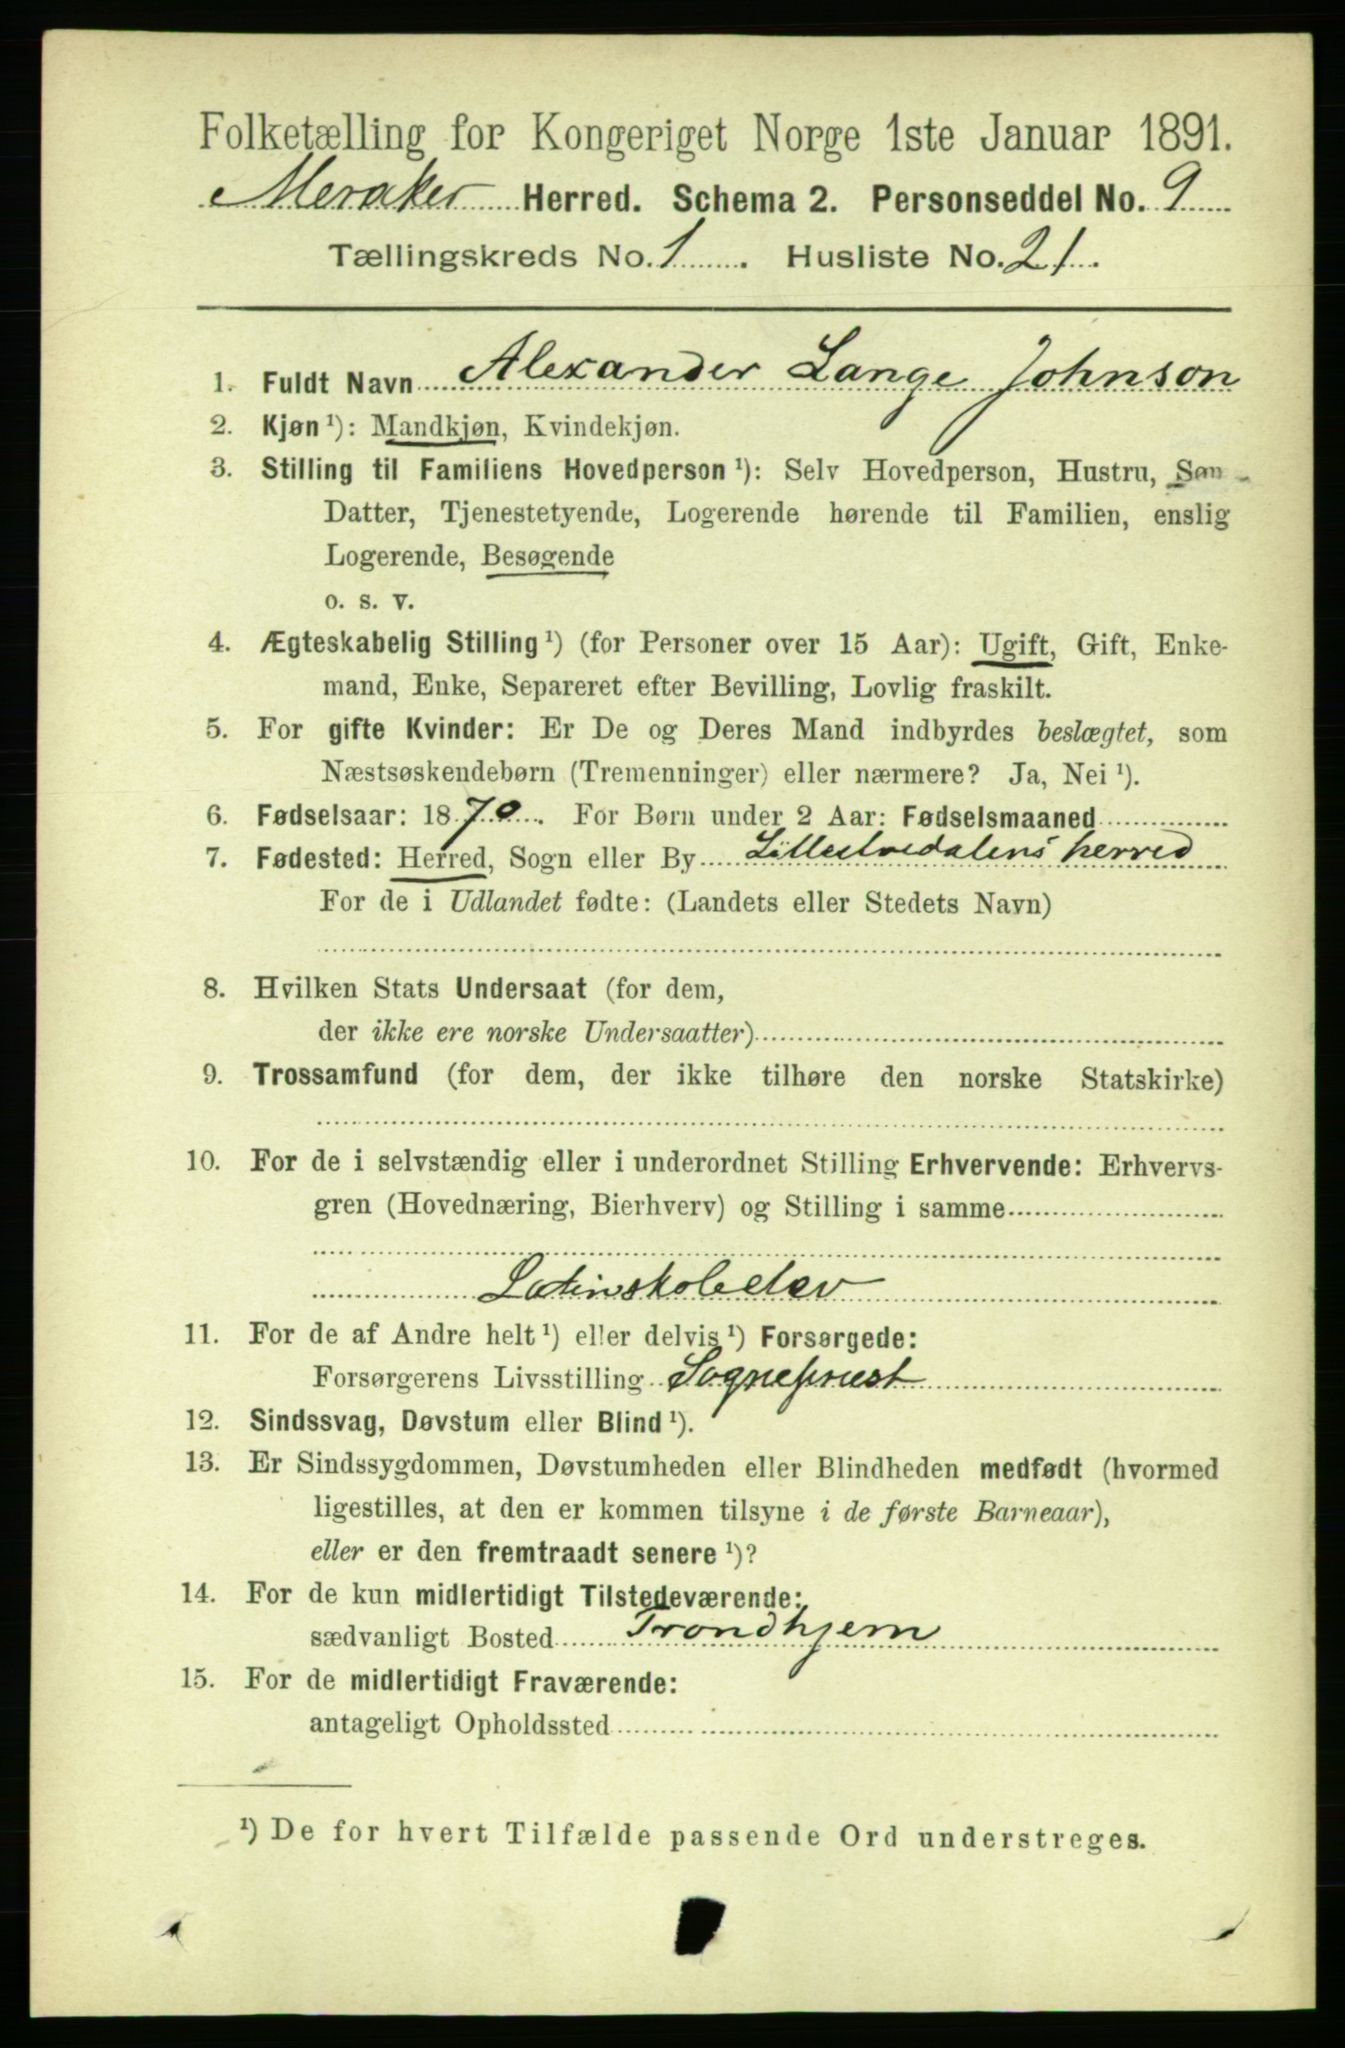 Folketælling for Kongeriget Norge 1ste Januar 1891.
Meraker Herred. Schema 2. Personseddel No. 9
Tællingskreds No. 1. Husliste No. 21.
1. Fuldt Navn Alexander Lange Johnson
2. Kjøn ¹): Mandkjøn, Kvindekjøn.
3. Stilling til Familiens Hovedperson ¹): Selv Hovedperson, Hustru, Søn
Datter, Tjenestetyende, Logerende hørende til Familien, enslig
Logerende, Besøgende
o. s. v.
4. Ægteskabelig Stilling ¹) (for Personer over 15 Aar): Ugift, Gift, Enke-
mand, Enke, Separeret efter Bevilling, Lovlig fraskilt.
5. For gifte Kvinder: Er De og Deres Mand indbyrdes beslægtet, som
Næstsøskendebørn (Tremenninger) eller nærmere? Ja, Nei ¹).
6. Fødselsaar: 1870. For Børn under 2 Aar: Fødselsmaaned
7. Fødested: Herred, Sogn eller By Lilleelvedalens herred
For de i Udlandet fødte: (Landets eller Stedets Navn)
8. Hvilken Stats Undersaat (for dem,
der ikke ere norske Undersaatter)
9. Trossamfund (for dem, der ikke tilhøre den norske Statskirke)
10. For de i selvstændig eller i underordnet Stilling Erhvervende: Erhvervs-
gren (Hovednæring, Bierhverv) og Stilling i samme
Latinskoleelev
11. For de af Andre helt ¹) eller delvis ¹) Forsørgede:
Forsørgerens Livsstilling Sogneprest
12. Sindssvag, Døvstum eller Blind ¹).
13. Er Sindssygdommen, Døvstumheden eller Blindheden medfødt (hvormed
ligestilles, at den er kommen tilsyne i de første Barneaar),
eller er den fremtraadt senere ¹)?
14. For de kun midlertidigt Tilstedeværende:
sædvanligt Bosted Trondhjem
15. For de midlertidigt Fraværende:
antageligt Opholdssted
¹) De for hvert Tilfælde passende Ord understreges.